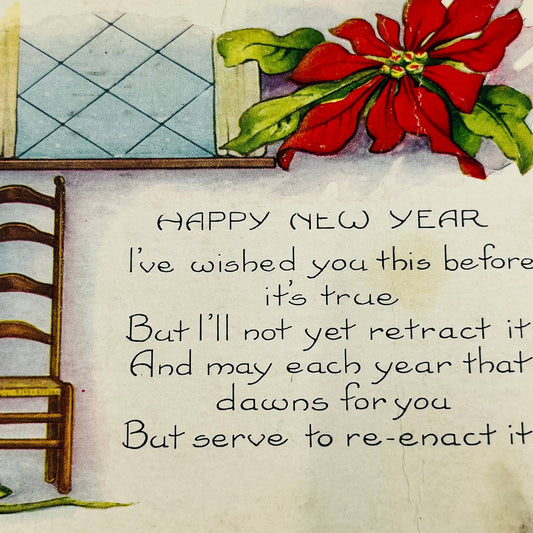 HAPPY NEW YEAR
I've wished you this before
it's true
But I'll not yet retract it
And may each year that
dawns for you
But serve to re-enact it